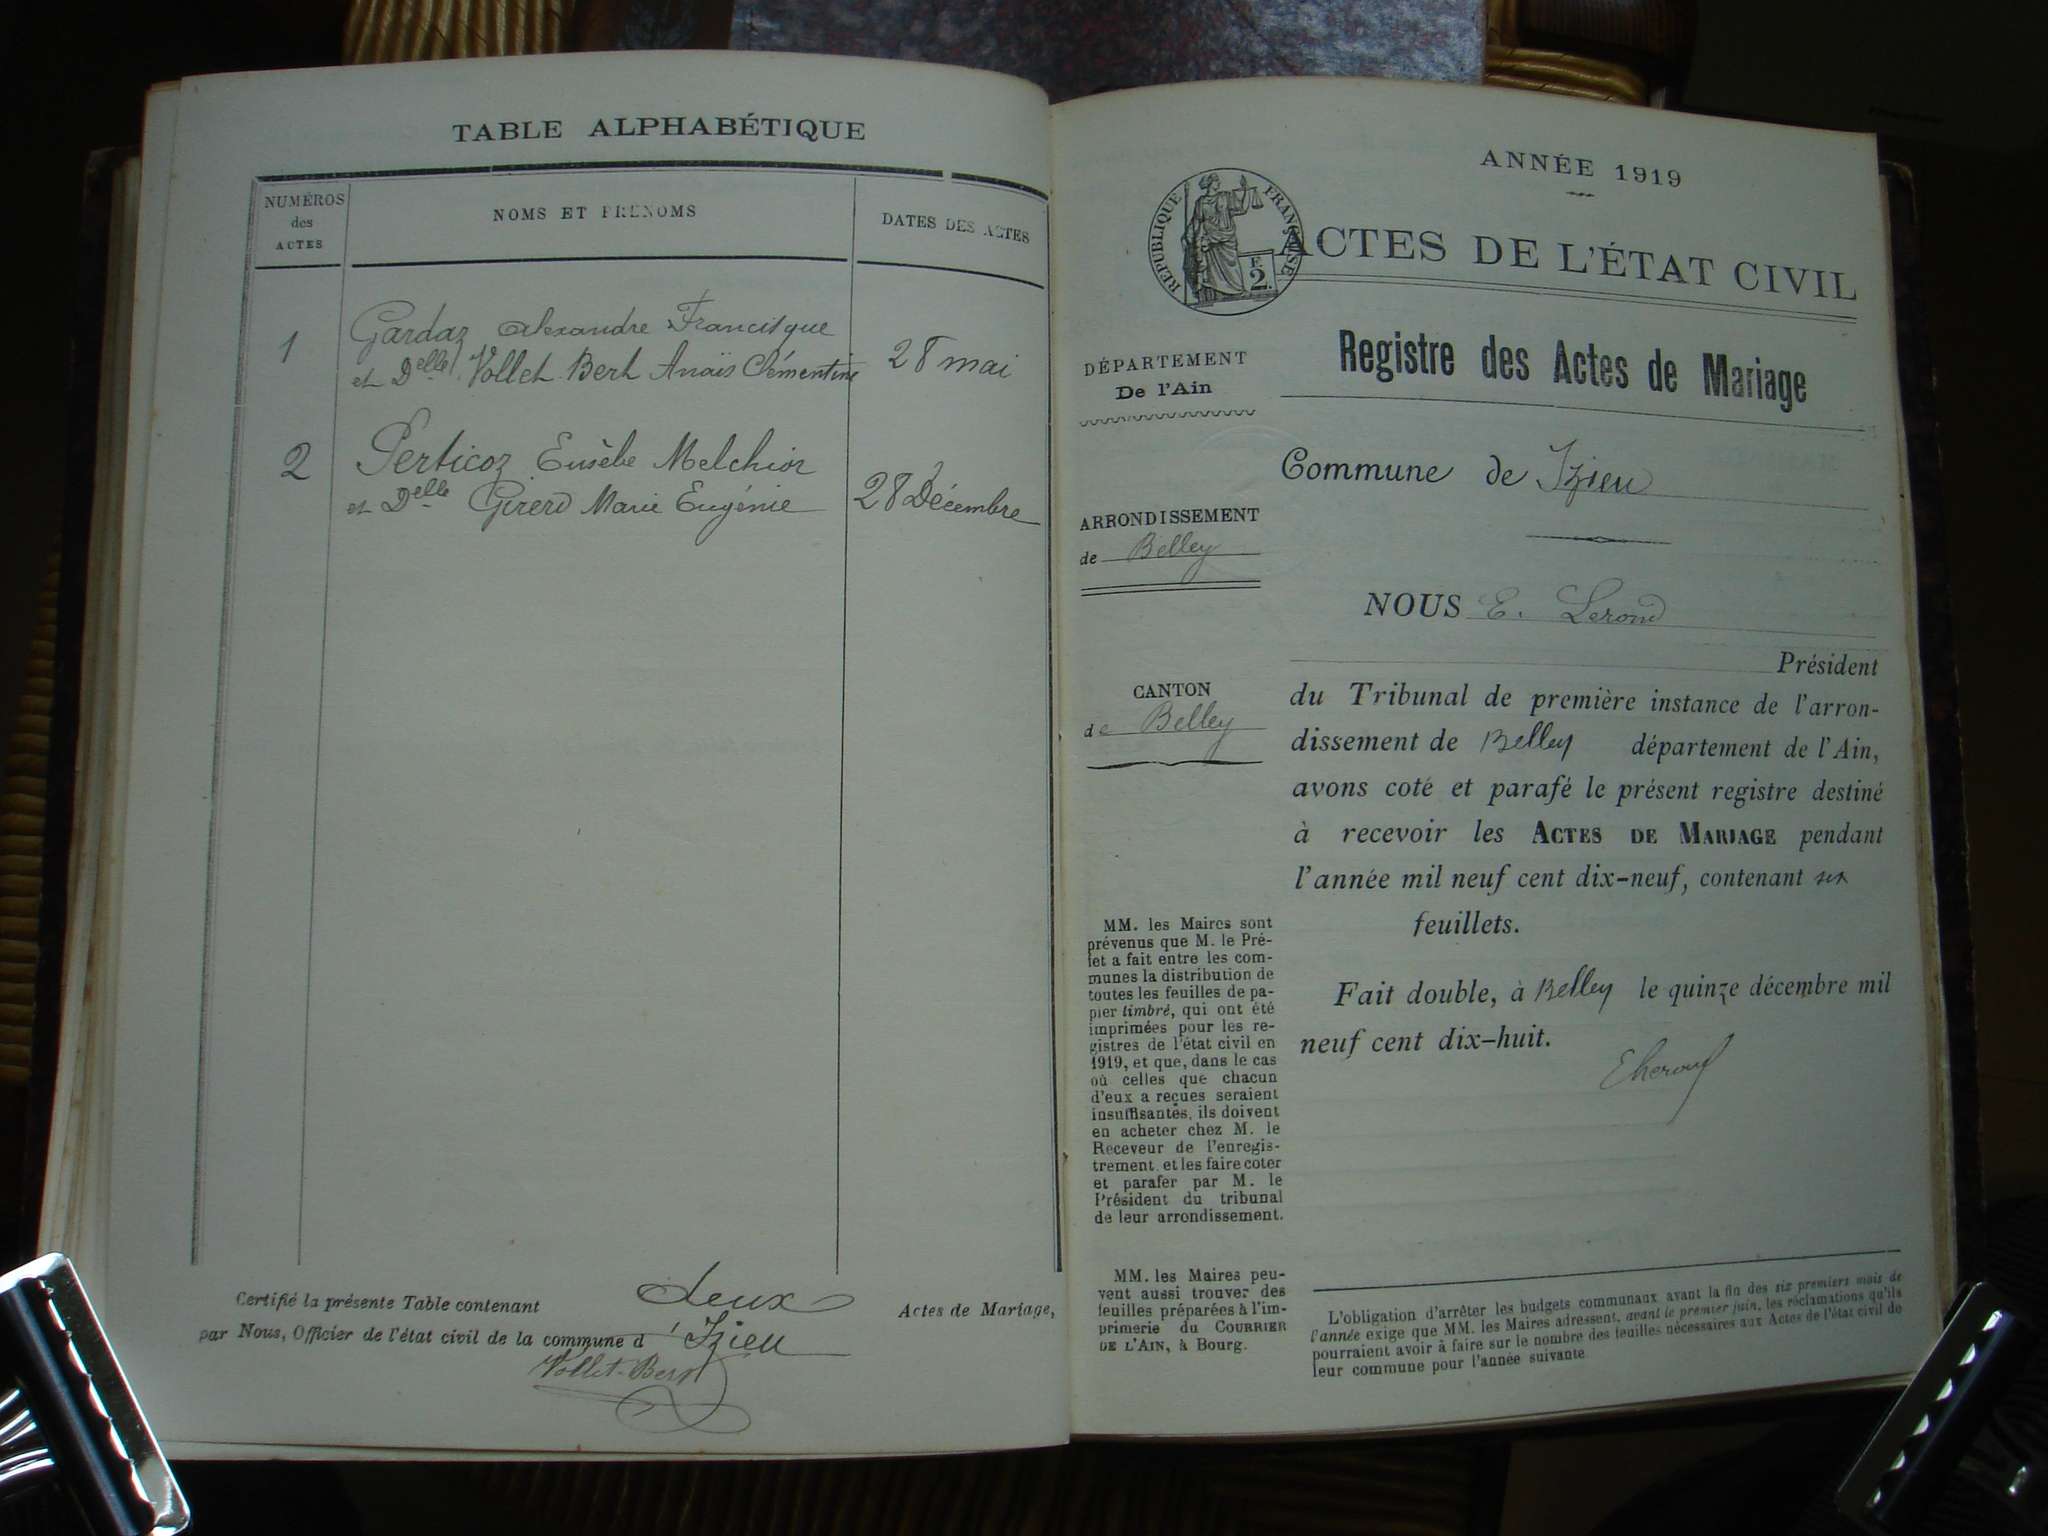 TABLE ALPHABÉTIQUE
NUMÉROS
des
ACTES
NOMS ET PRÉNOMS
DATES DES ACTES
1
Gardaz Alexandre Francisque
et Delle Vollet Bert Anaïs Clémentine
28 mai
2
Perticoz Eusèbe Melchior
et Delle Girerd Marie Eugénie
28 Décembre
Certifié la présente Table contenant deux Actes de Mariage,
par Nous, Officier de l'état civil de la commune d'Izieu
Vollet-Bert
ANNÉE 1919
RÉPUBLIQUE FRANÇAISE
F.
2.
ACTES DE L'ÉTAT CIVIL
Registre des Actes de Mariage
DÉPARTEMENT
De l'Ain
Commune de Izieu
ARRONDISSEMENT
de Belley
CANTON
de Belley
MM. les Maires sont
prévenus que M. le Pré-
fet a fait entre les com-
munes la distribution de
toutes les feuilles de pa-
pier timbré, qui ont été
imprimées pour les re-
gistres de l'état civil en
1919, et que, dans le cas
où celles que chacun
d'eux a reçues seraient
insuffisantes, ils doivent
en acheter chez M. le
Receveur de l'enregis-
trement et les faire coter
et parafer par M. le
Président du tribunal
de leur arrondissement.
MM. les Maires peu-
vent aussi trouver des
feuilles préparées à l'im-
primerie du COURRIER
DE L'AIN, à Bourg.
NOUS E. Lerond
Président
du Tribunal de première instance de l'arron-
dissement de Belley département de l'Ain,
avons coté et parafé le présent registre destiné
à recevoir les ACTES DE MARIAGE pendant
l'année mil neuf cent dix-neuf, contenant six
feuillets.
Fait double, à Belley le quinze décembre mil
neuf cent dix-huit.
L'obligation d'arrêter les budgets communaux avant la fin des six premiers mois de
l'année exige que MM. les Maires adressent, avant le premier juin, les réclamations qu'ils
pourraient avoir à faire sur le nombre des feuilles nécessaires aux Actes de l'état civil de
leur commune pour l'année suivante